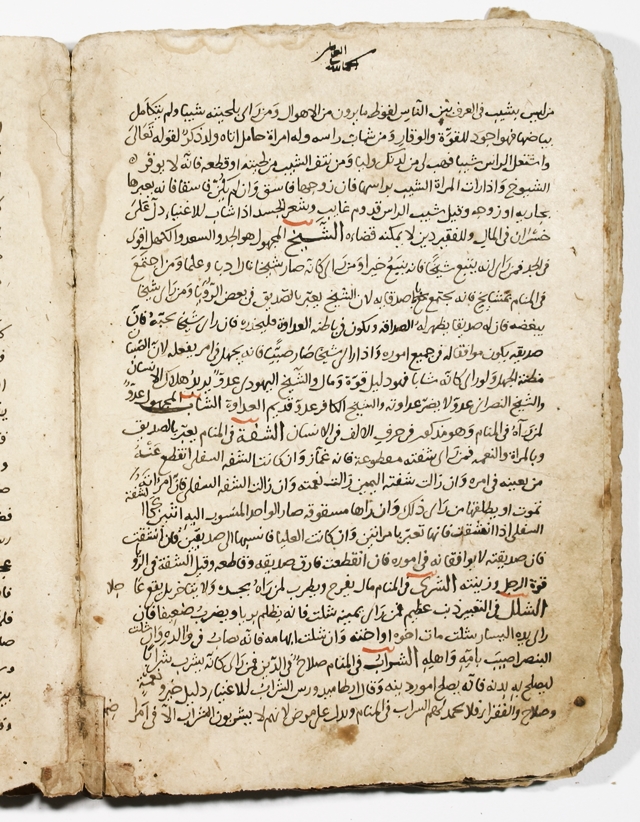 من ليس بشيب في العرف بين الناس لفوطه ما يرون من الاهوال ومن راى بلحيته شيبا ولم يتكامل
بياضها فهو اجود للقوة والوقار ومن شاب راسه وله امراة حامل اتاه ولد ذكر لقوله تعالى
واشتعل الراس شيبا فهب لي من لدنك وليا ومن نتف الشيب من لحيته او قطعه فانه لا يوقر
الشيوخ واذا رات المراة الشيب براسها فان زوجها فاسق وان لم يكن فاسقا فانه يعيرها
بجارية او زوجة وقيل شيب الراس قدوم غايب وشعر الجسد اذا شاب للاغنياء دل على
خسران في المال وللفقير دين لا يمكنه قضاءه الشيخ المجهول هو الجد والسعد والكهل اقول
في الجد فمن راى انه يتبع شيخا فانه يتبع خيرا ومن راى كانه صار شيخا نال ادبا وعلما ومن اجتمع
في المنام بمشايخ فانه يجتمع باصدقايه لان الشيخ يعبر بالصديق في بعض الرؤيا ومن راى شيخا
يبغضه فان له صديقا يظهر له الصداقة ويكون في باطنه العداوة فليحذره فان راى شيخا يحبه فان
صديقه يكون موافقا له في جميع اموره واذا راى شيخ صار صبيا فانه يجهل في امر يفعله لان الصبا
مظنة الجهل ولو راى كانه شابا فهو دليل قوة ومال والشيخ اليهودي عدو يريد هلاك الانسان
والشيخ النصراني عدو لا يضر عداوته والشيخ الكافر عدو قديم العداوة الشاب المجهول عدو
لمن راه في المنام وهو مذكور في حرف الالف في الانسان الشفة في المنام يعبر بالصديق
وبالمراة والنعمة فمن راى شفته مقطوعة فانه غماز وان كانت الشفة السفلى انقطع عنه
من يعينه في امره وان زالت شفته اليمين زالت نعمته وان زالت الشفة السفلى فان امراته
تموت او يطلقها من راى ذلك وان راها مشقوقة صار الواحد المنسوب اليه اثنين
السفلى اذا انشقت فانها تعبر بامراتين وان كانت العليا فانسبها الى صديقين فان انشقت
فان صديقيه لا يوافقانه في اموره فان انقطعت فارق صديقه وقاطعه وقيل الشفة في الرؤيا
قوة الرجل وزينته الشرى في المنام مال يفرح ويطرب لمن راه بجسده ولا يتاخر بل يقع عاجلا
الشلل في التعبير ذنب عظيم فمن راى يمينه شلت فانه يظلم بريا ويضرب ضعيفا فان
راى يده اليسار شلت مات اخوه او اخته وان شلت ابهامه فانه يصاب في والديه وان شلت
البنصر اصيب بامه واهله الشراب في المنام صلاح في الدين فمن راى كانه يشرب شرابا
ليصلح به بدنه فانه يصلح امور دينه وشرب الشراب للاغنياء دليل خير ونعمة
وصلاح والفقراء فلا يحمد لهم الشراب في المنام ويدل على مرض لانهم لا يشربون الشراب الا في امراض